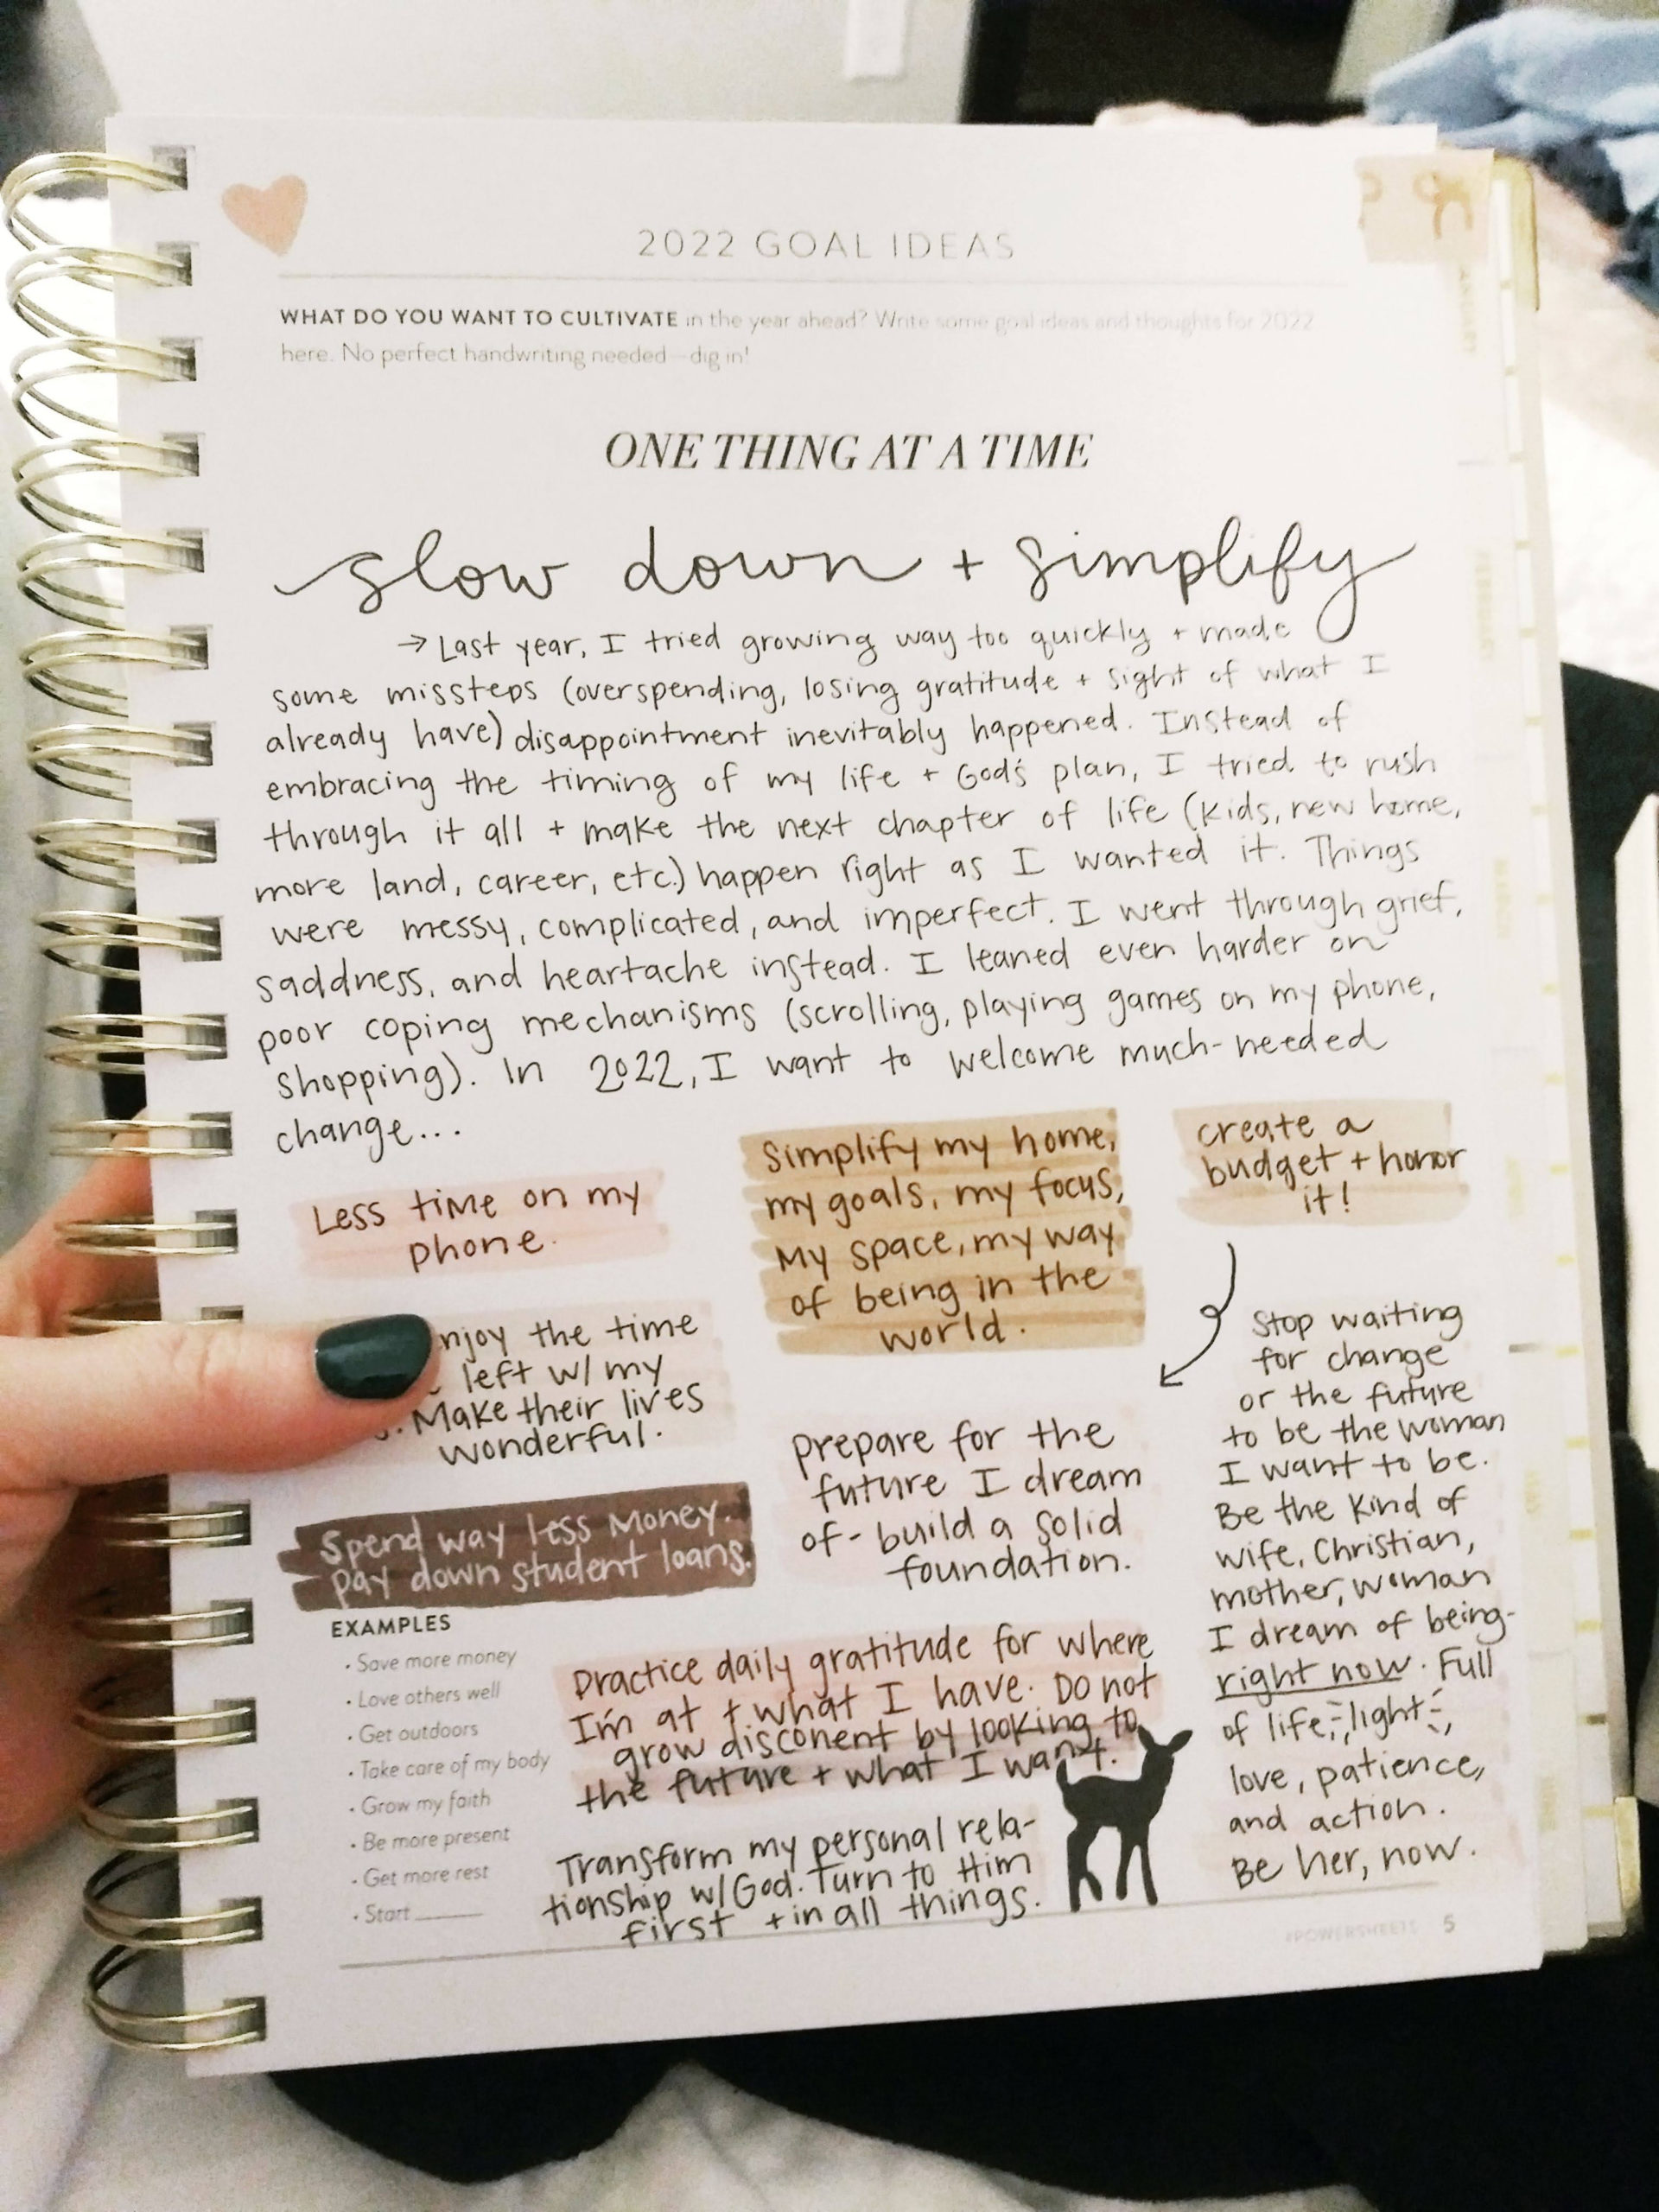 2022 GOAL IDEAS
WHAT DO YOU WANT TO CULTIVATE in the year ahead? Write some goal ideas and thoughts for 2022
here. No perfect handwriting needed—dig in!
ONE THING AT A TIME
slow down + simplify
→ Last year, I tried growing way too quickly + made
some missteps (overspending, losing gratitude + sight of what I
already have) disappointment inevitably happened. Instead of
embracing the timing of my life + God's plan, I tried to rush
through it all + make the next chapter of life (kids, new home,
more land, career, etc.) happen right as I wanted it. Things
were messy, complicated, and imperfect. I went through grief,
saddness, and heartache instead. I leaned even harder on
poor coping mechanisms (scrolling, playing games on my phone,
shopping). In 2022, I want to welcome much-needed
change...
Less time on my
phone.
Simplify my home,
my goals, my focus,
My space, my way
of being in the
world.
create a
budget + honor
it!
njoy the time
left w/ my
. Make their lives
wonderful.
Spend way less Money.
Pay down student loans.
prepare for the
future I dream
of - build a solid
foundation.
Stop waiting
for change
or the future
to be the woman
I want to be.
Be the kind of
wife, Christian,
mother, woman
I dream of being-
right now. Full
of life, light,
love, patience,
and action.
Be her, now.
Practice daily gratitude for where
I'm at + what I have. Do not
grow disconent by looking to
the future + what I want.
Transform my personal rela-
tionship w/ God. Turn to Him
first + in all things.
EXAMPLES
• Save more money
• Love others well
• Get outdoors
• Take care of my body
• Grow my faith
• Be more present
• Get more rest
• Start ______
#POWERSHEETS 5